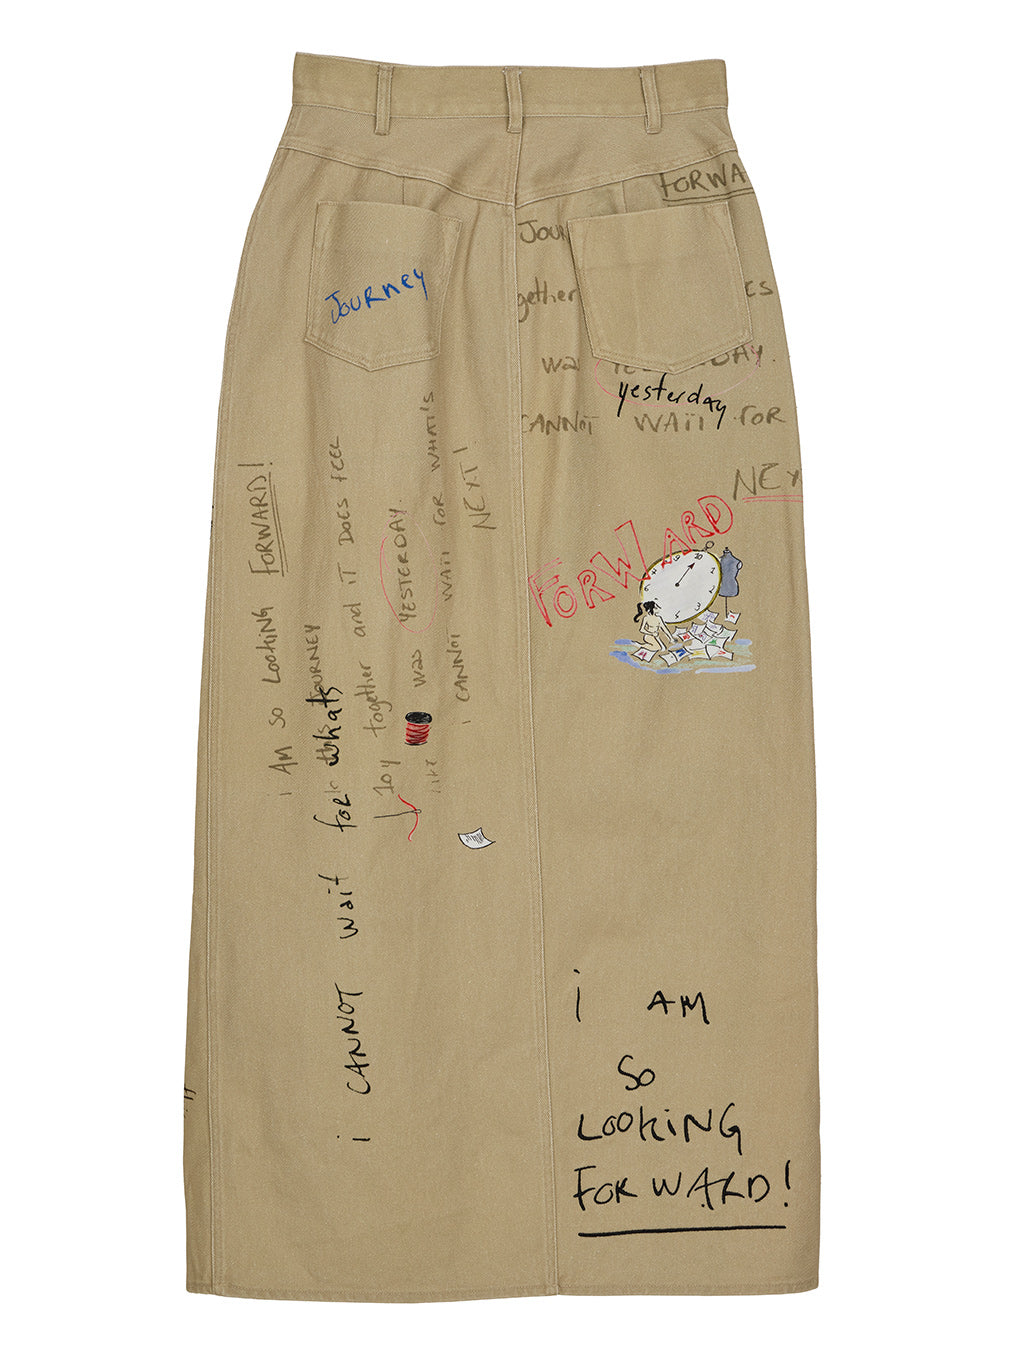 FORWA
JOU
Journey
gether
ES
wa
DAY.
yesterday
CANNOT WAIT FOR
NEX
FORWARD
i AM SO LOOKING FORWARD!
JOURNEY
JOY together and IT DOES FEEL
LIKE WAS YESTERDAY.
i CANNOT WAIT FOR WHAT'S
NEXT!
i CANNOT wait for whats
i AM
So
LOOKING
FORWARD!